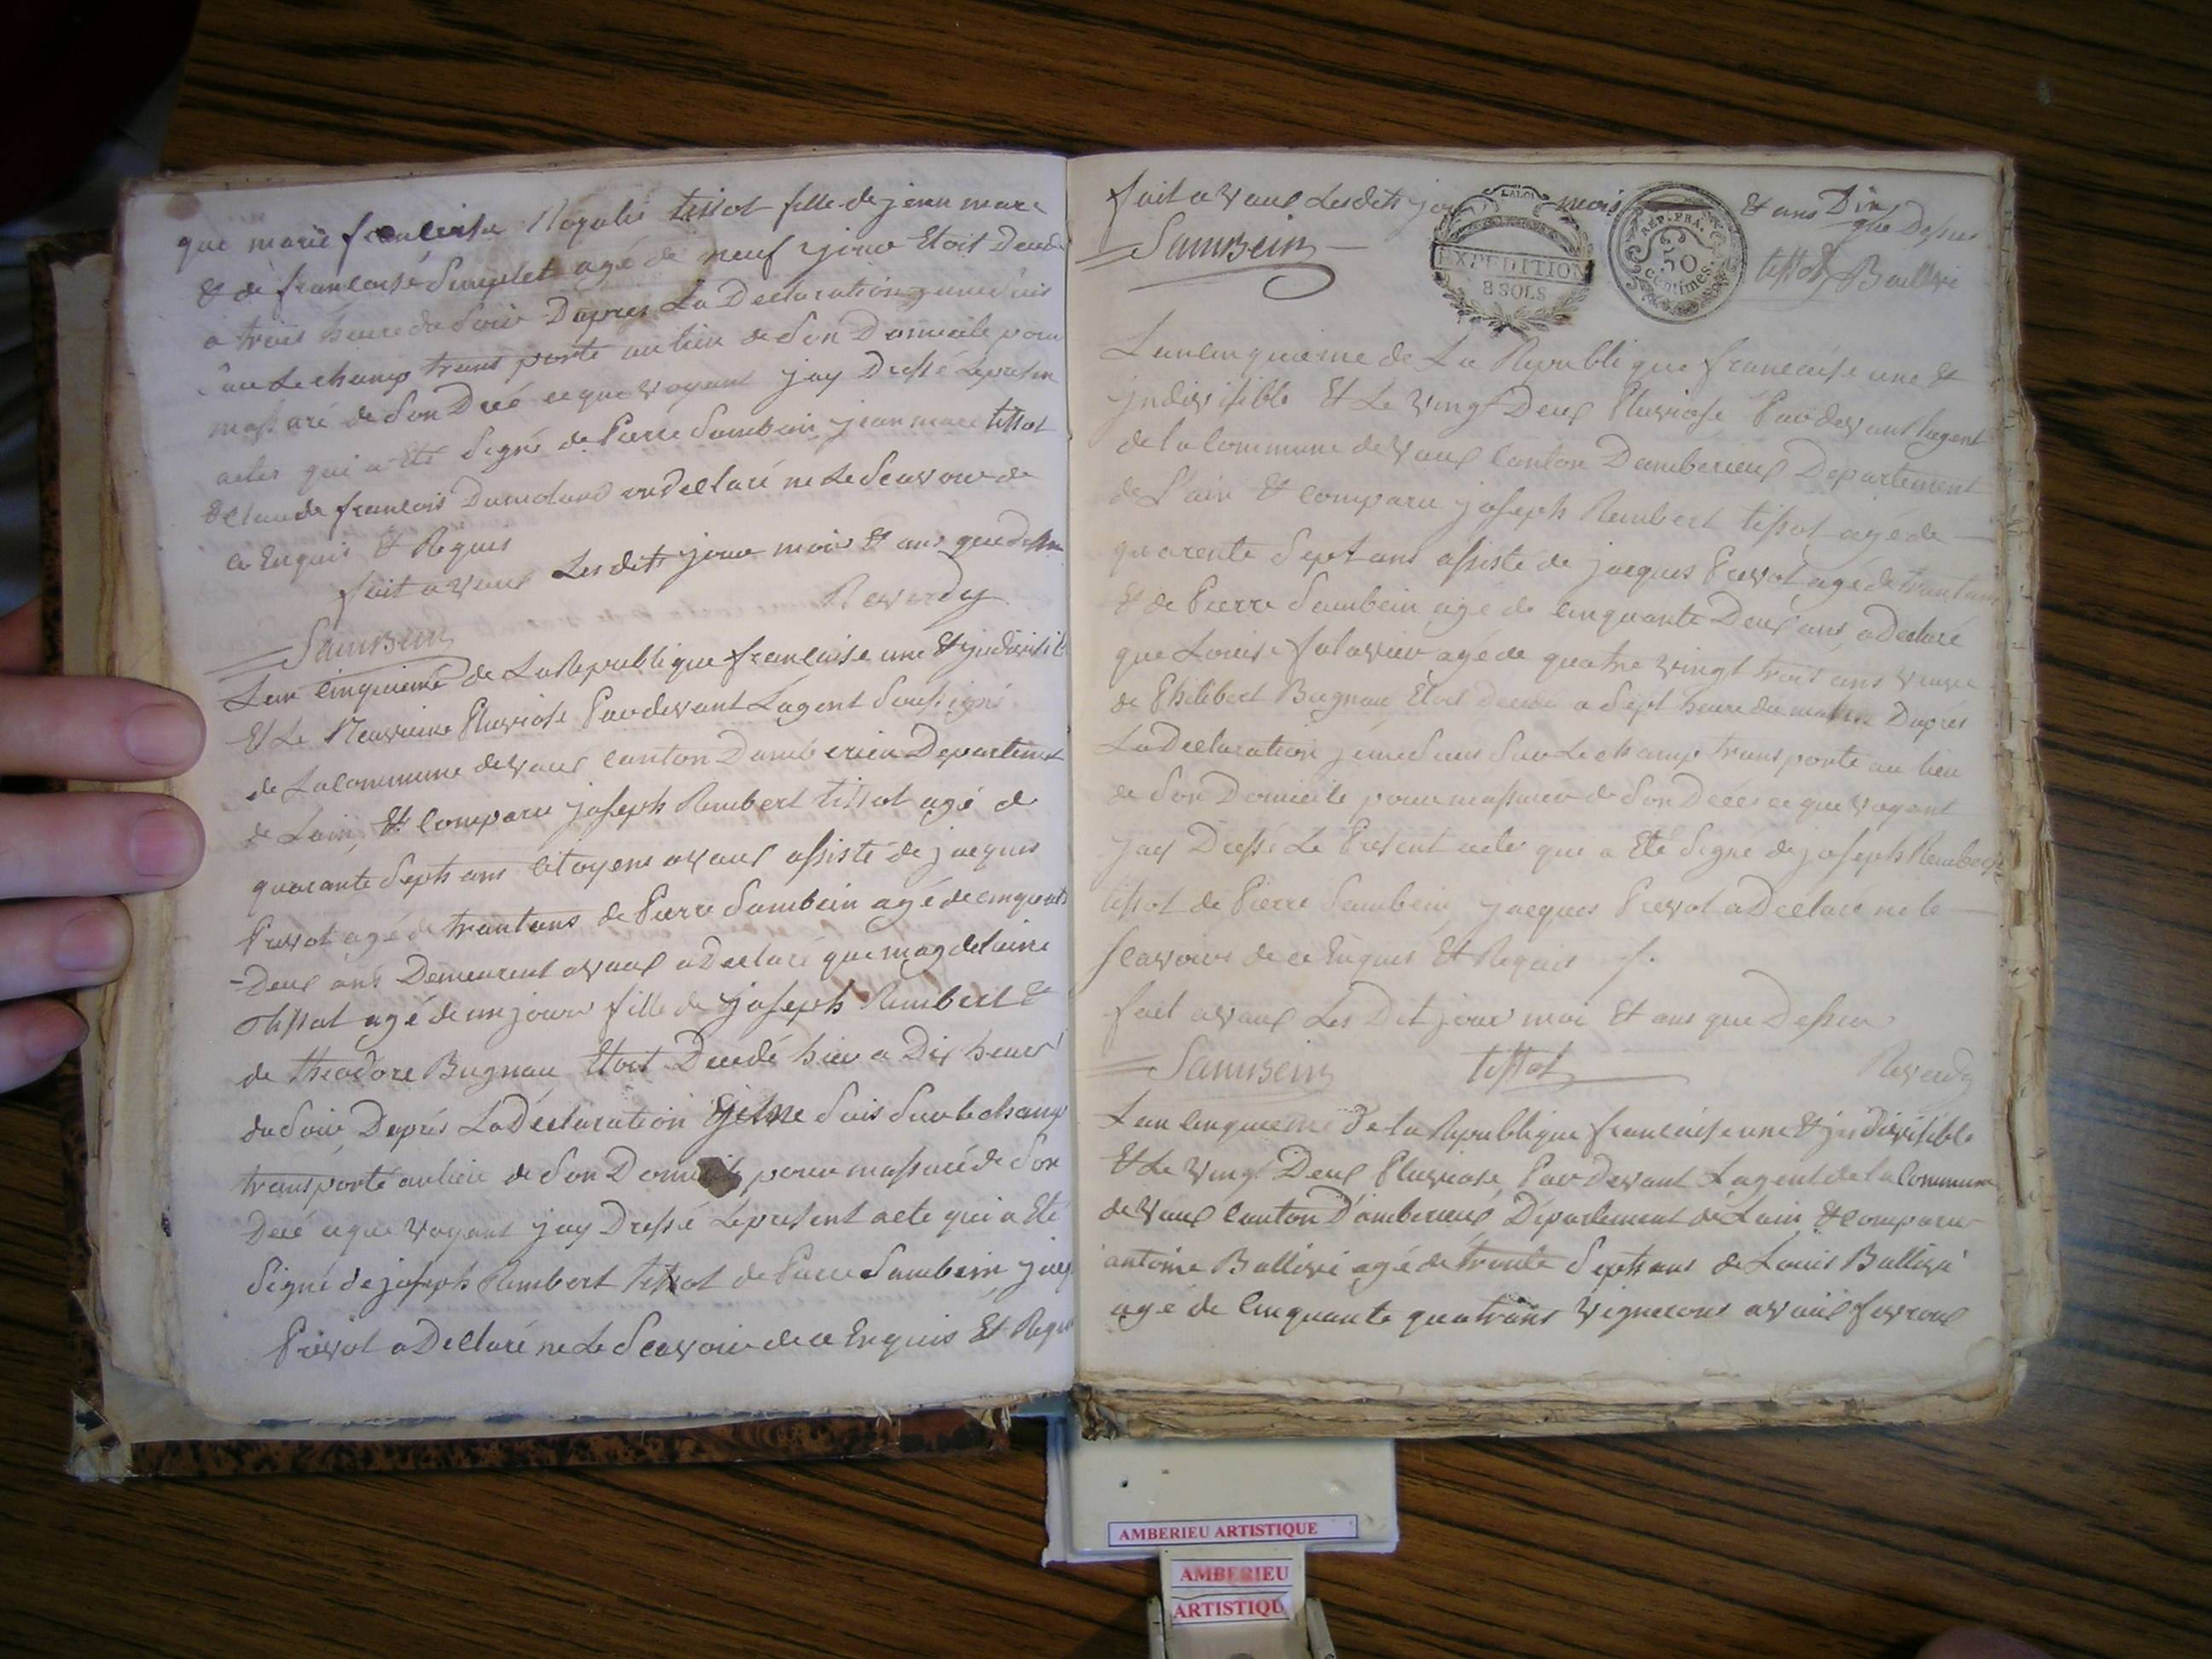 que marie francoise Rogalie tissot fille de jean marc
& de francoise Simplet agé de neuf jour Etoit Decede
a trois heure du Soir Dapres La Declaration jemesuis
Sur Lechamp trans porté au lieu de Son Domicile pour
massuré de Son Decé ceque voyant jay Dressé Lepresen
actes qui a Eté Signé de Pierre Sambein jean marc tissot
& claude francois Dumolard on Declaré ne Le Scavoir de
ce Enquis Et Requis
fait avaux Lesdits jour mois & ans que Dessu
Samsein Reverdy
Lan Cinquieme de La Republique francaise une & jndivisible
Et Le Neuvieme Pluviose Pardevant Lagent Soussigné
de La Commune devaux Canton Damberieu Departement
de Lain, Et Comparu joseph Rambert tissot agé de
quarante Septs ans Citoyens avaux assisté de jacques
Prevot agé de trantans de Pierre Sambein agé de cinquante
-Deux ans Demeurent avaux a Declaré que magdelaine
Thissot agé de un jour fille de joseph Rambert &
de theodore Bugnau Etoit Decedé hier a Dix heures
du Soir Daprés La Déclaration jeme Suis Sur le champ
transporté au lieu de Son Domicile pour massuré de Son
Decé ceque voyant jay Dressé Lepresent acte qui a Eté
Signé de joseph Rambert tissot de Pierre Sambein jacq
Prévot a Declaré ne Le Scavoir de ce Enquis Et Requ
fait avaux Lesdits jour mois & ans Dix
que Dessus
Samsein tissot Ballivi
LALOI
EXPEDITION
8 SOLS
REP. FRA.
50
centimes.
Lancinquieme de La Republique francaise une &
jndivisible Et Le vingt Deux Pluviose Pardevant lagent
de la Commune devaux Canton Damberieux Departement
de Lain Et Comparu joseph Rambert tissot agé de
quarente Sept ans assisté de jacques Prevot agé de trantans
Et de Pierre Sambein agé de Cinquante Deux ans, a Declaré
que Louise falavier agé de quatre vingt trois ans veuve
de Philibert Bugnau Etoit decedé a Sept heure du matin Daprés
La Declaration jemeSuis Sur Le champ transporté au lieu
de Son Domicile pour massuré de Son Décé ce que voyant
jay Dressé Le Present acte qui a Eté Signé de joseph Rambert
tissot de Pierre Sambein jacques Prevot a Déclaré ne le
scavoir de ce Enquis Et Requis
fait avaux Les Dit jour moi Et ans que Dessu
Samsein tissot Reverdy
Lan Cinquieme de la Republique francaise une & jndivisible
Et Le vingt Deux Pluviose Pardevant Lagent de la Commune
de vaux Canton D'amberieux Département de Lain & comparu
antoine Ballivi agé de trente Septs ans de Louis Ballivi
agé de Cinquante quatrans vignerons avaux fevroux
AMBERIEU ARTISTIQUE
AMBERIEU
ARTISTIQU